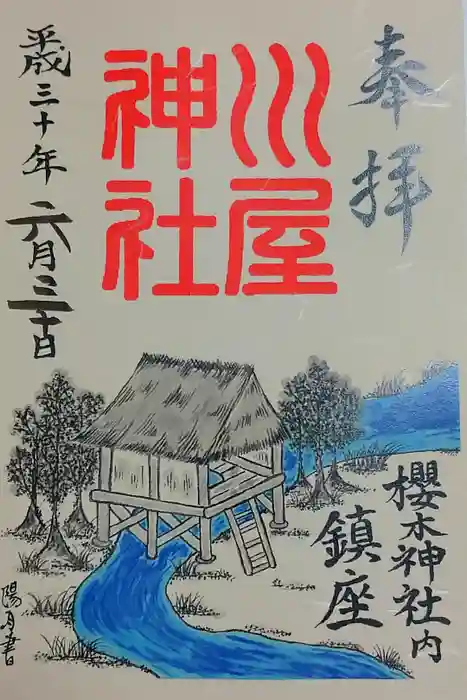 奉拝
川屋
神社
平成三十年六月三十日
櫻木神社内
鎮座
陽月書